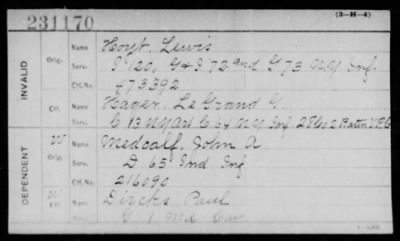 231170
(3-H-4)
INVALID
Orig.
Name Hoyt, Lewis
Serv. I 120, G & I 72nd & 73 N.Y. Inf
Ctf. No. 473392
Ctf.
Name Haver, Le Grand G.
Serv. C 13 NY Art C 64 N.Y. Inf
DEPENDENT
W
Orig.
Name Medcalf, John A.
Serv. D 65 Ind Inf
Ctf. No. 216090
W
Ctf.
Name Dircks, Paul
Serv. G 1 Md Cav